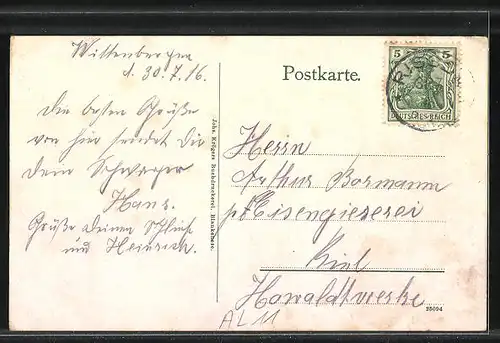 Wittenbergen
d. 30.7.16.
Die besten Grüße
von hier sendet Dir
Dein Schwager
Hans.
Grüße
und Heinrich.
Joh. Krögers Buchdruckerei, Blankenese.
Postkarte.
5 5
DEUTSCHES REICH
Herrn
Arthur Bormann
Eisengieserei
Kiel
Howaldtwerke
25094
AL 11